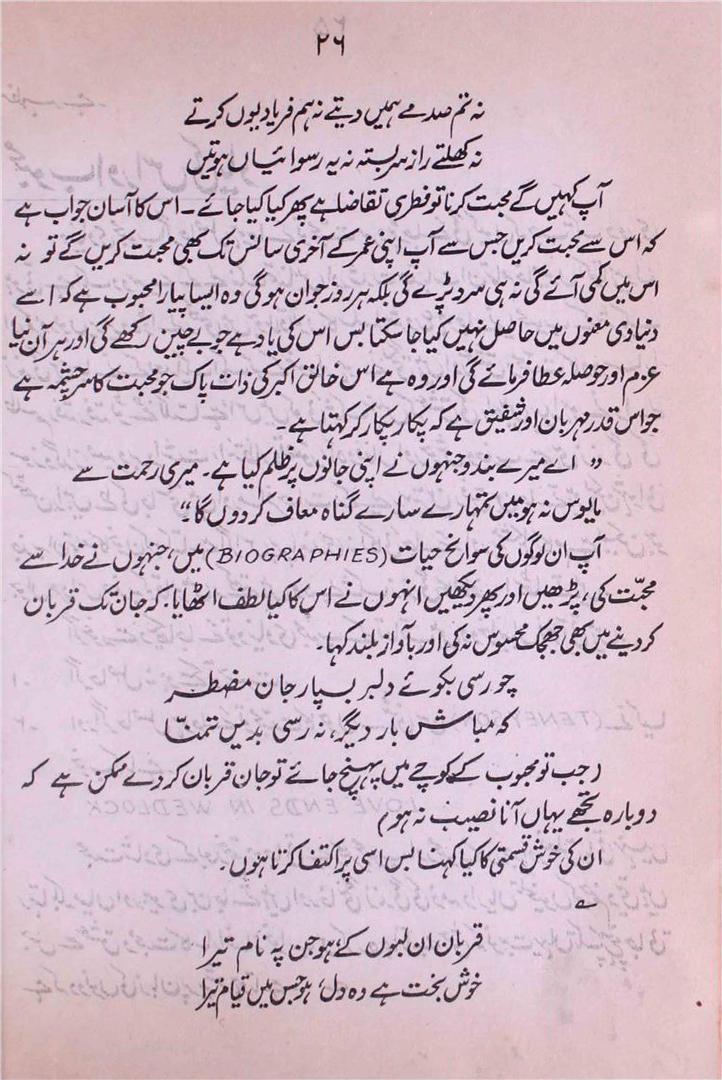 ۲۶
نہ تم صدمے ہمیں دیتے نہ ہم فریاد یوں کرتے
نہ کھلتے راز سربستہ نہ یہ رسوائیاں ہوتیں
آپ کہیں گے محبت کرنا تو فطری تقاضا ہے پھر کیا کیا جائے۔ اس کا آسان جواب ہے
کہ اس سے محبت کریں جس سے آپ اپنی عمر کے آخری سانس تک بھی محبت کریں گے تو نہ
اس میں کمی آئے گی نہ ہی سرد پڑے گی بلکہ ہر روز جوان ہوگی وہ ایسا پیارا محبوب ہے کہ اسے
دنیاوی معنوں میں حاصل نہیں کیا جا سکتا بس اس کی یاد ہے جو بے چین رکھے گی اور ہر آن نیا
عزم اور حوصلہ عطا فرمائے گی اور وہ ہے اس خالق اکبر کی ذات پاک جو محبت کا سرچشمہ ہے
جو اس قدر مہربان اور شفیق ہے کہ پکار پکار کر کہتا ہے۔
” اے میرے بندو جنہوں نے اپنی جانوں پر ظلم کیا ہے۔ میری رحمت سے
مایوس نہ ہو میں تمہارے سارے گناہ معاف کر دوں گا۔“
آپ ان لوگوں کی سوانح حیات (BIOGRAPHIES) میں، جنہوں نے خدا سے
محبّت کی، پڑھیں اور پھر دیکھیں انہوں نے اس کا کیا لطف اٹھایا۔ کہ جان تک قربان
کر دینے میں بھی جھجک محسوس نہ کی اور بآواز بلند کہا۔
چو رسی بکوئے دلبر بسپار جان مضطر
کہ مباش بار دیگر، نہ رسی بدیں تمنّا
(جب تو محبوب کے کوچے میں پہنچ جائے تو جان قربان کر دے ممکن ہے کہ
دوبارہ تجھے یہاں آنا نصیب نہ ہو)
ان کی خوش قسمتی کا کیا کہنا بس اسی پر اکتفا کرتا ہوں۔
؎
قربان ان لبوں کے، ہو جن پہ نام تیرا
خوش بخت ہے وہ دل، ہو جس میں قیام تیرا